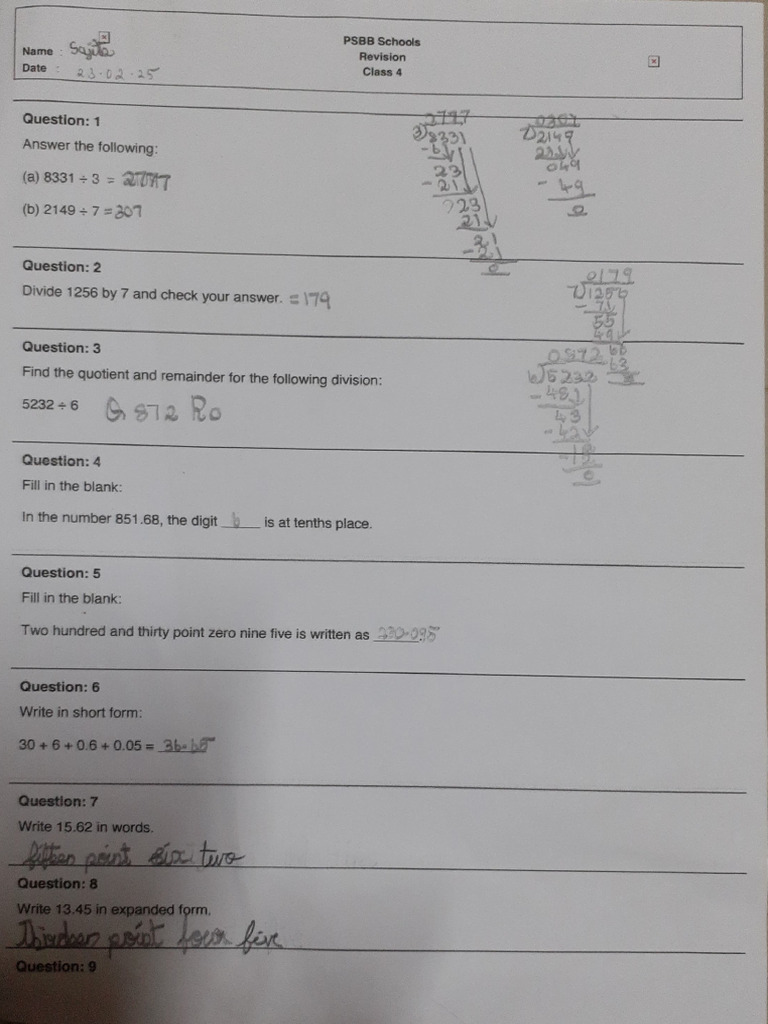 PSBB Schools
Name : Sajita
Revision
Date : 23.02.25
Class 4
Question: 1
Answer the following:
(a) 8331 ÷ 3 = 2777
(b) 2149 ÷ 7 = 307
2777
3)8331
-6
23
-21
23
21
21
-21
0
0307
7)2149
049
- 49
0
Question: 2
Divide 1256 by 7 and check your answer. = 179
0179
7)1256
55
49
63
Question: 3
Find the quotient and remainder for the following division:
5232 ÷ 6 Q 872 R0
0872
6)5232
-48
43
-42
0
Question: 4
Fill in the blank:
In the number 851.68, the digit 6 is at tenths place.
Question: 5
Fill in the blank:
Two hundred and thirty point zero nine five is written as 230.095
Question: 6
Write in short form:
30 + 6 + 0.6 + 0.05 = 36.65
Question: 7
Write 15.62 in words.
fifteen point six two
Question: 8
Write 13.45 in expanded form.
point four five
Question: 9